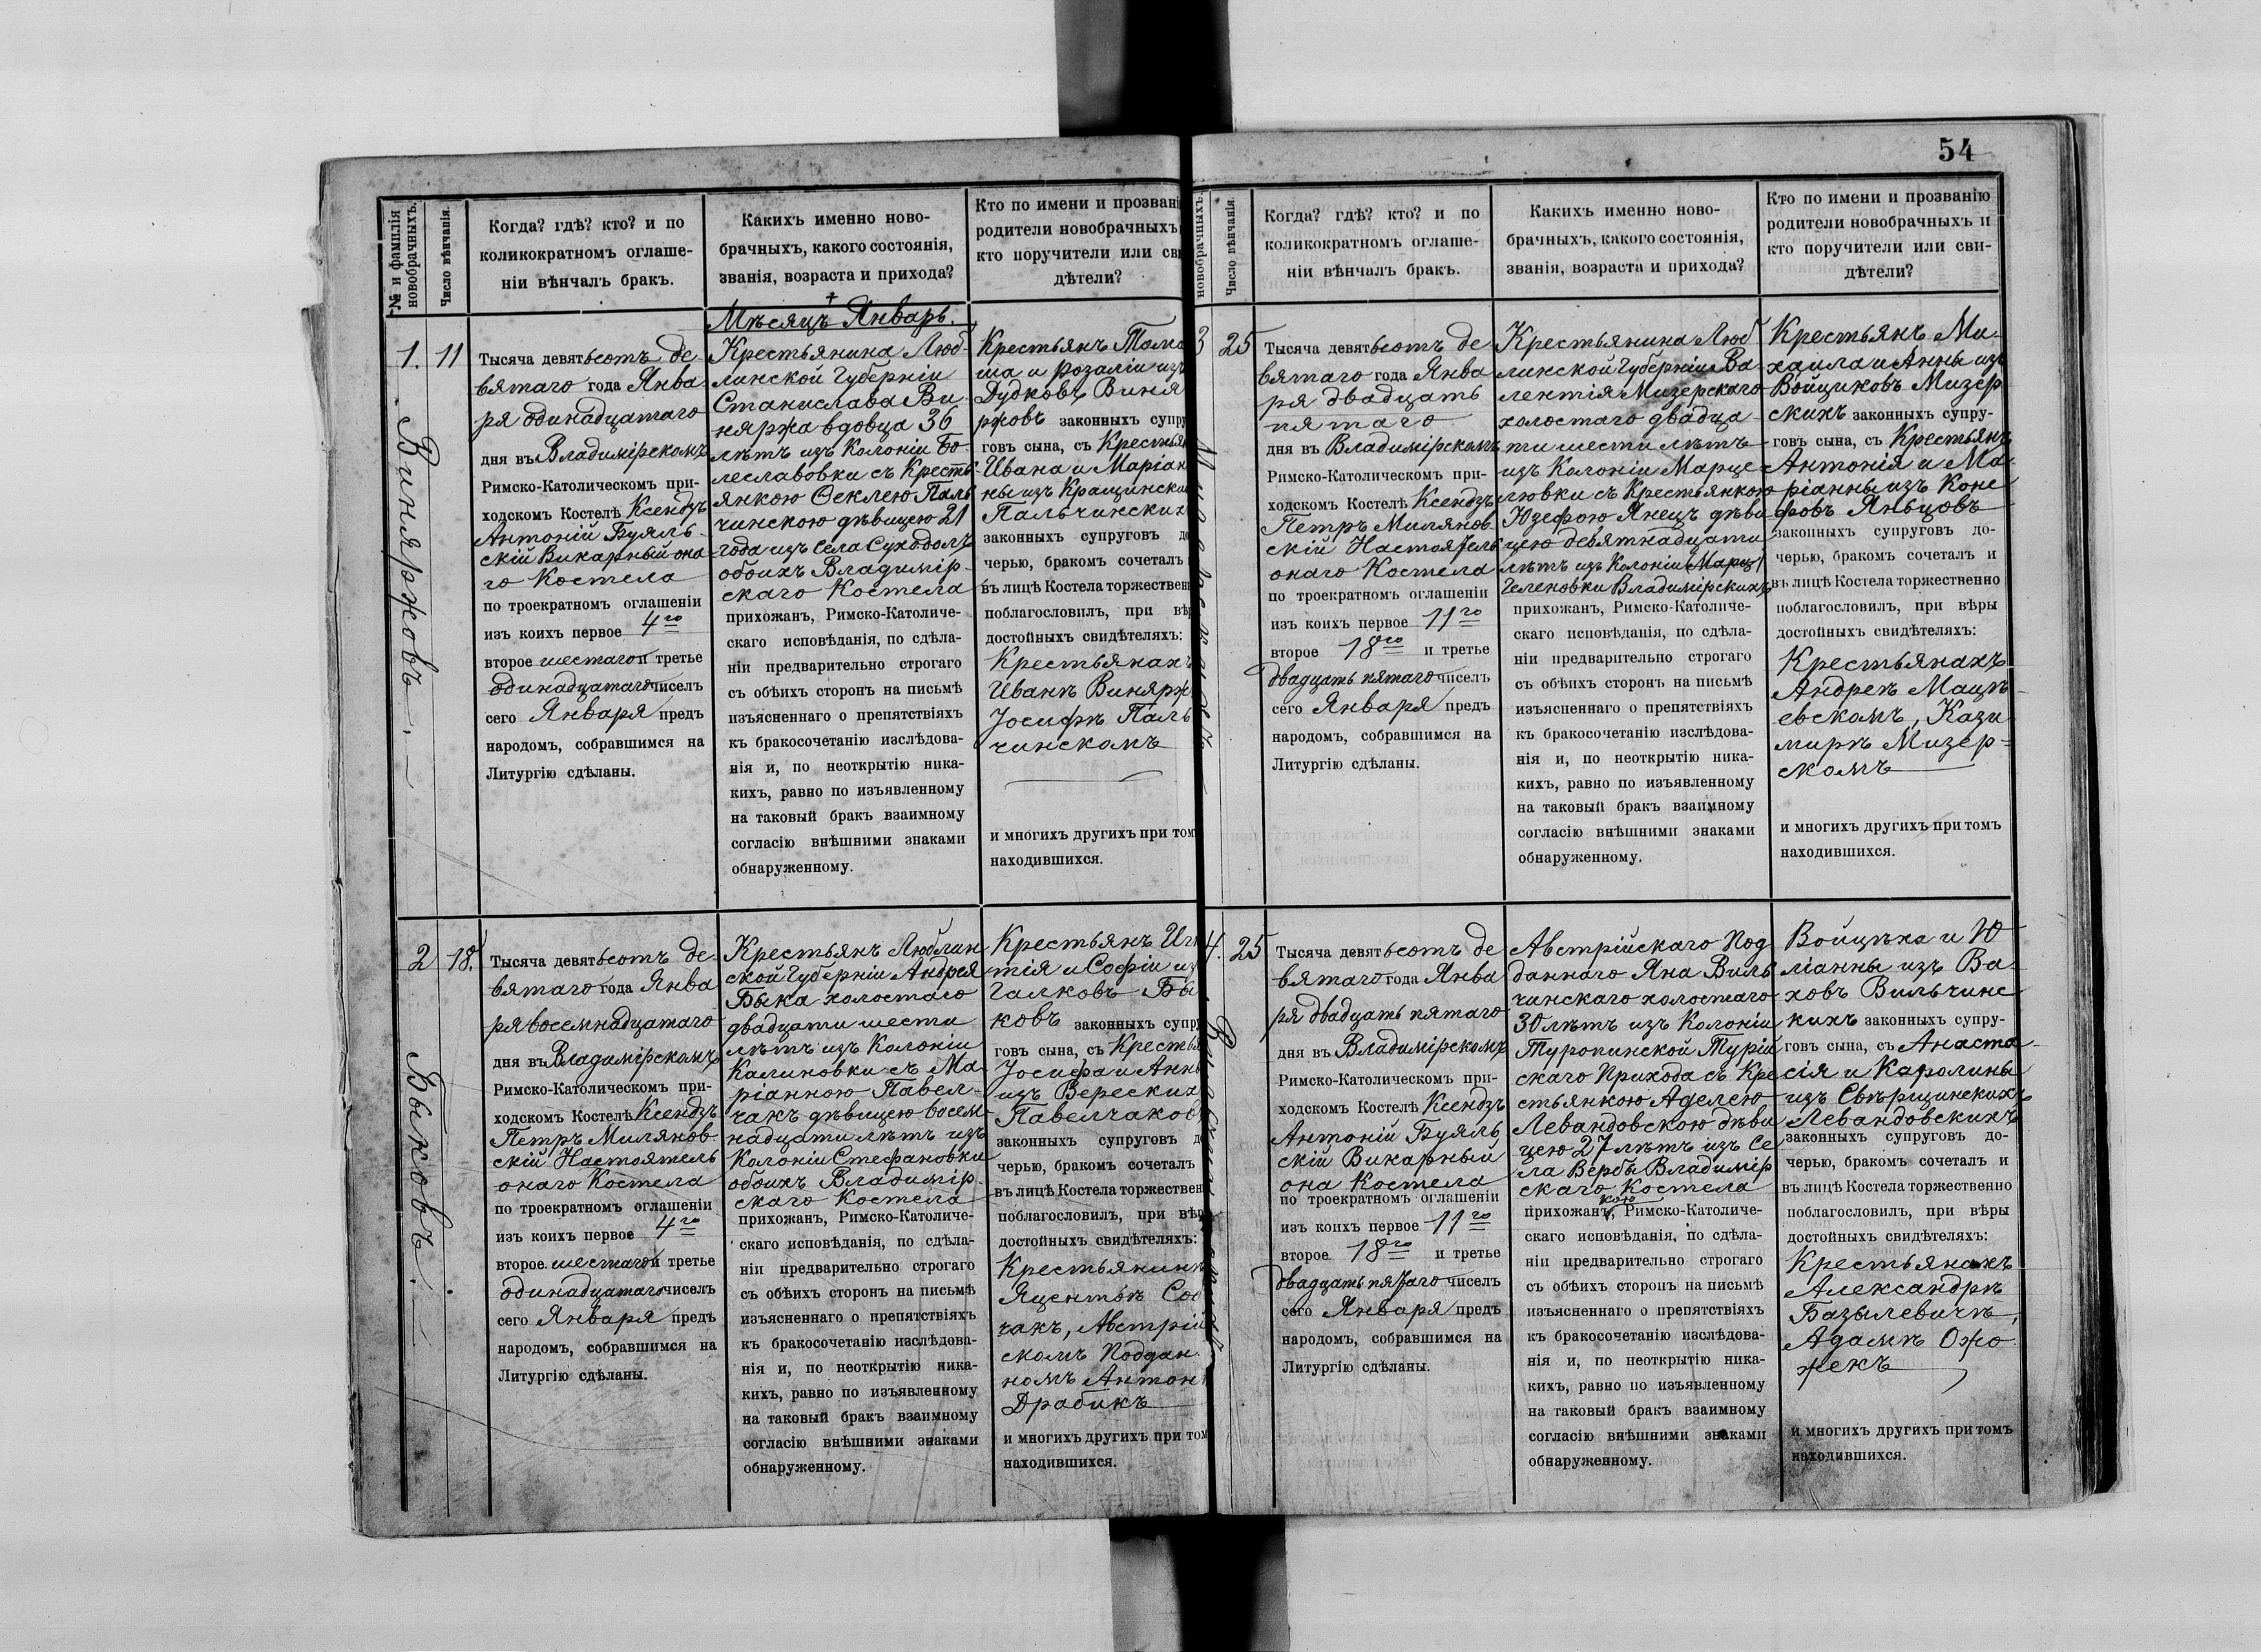 54
№ и фамилія
новобрачныхъ.
Число вѣнчанія.
Когда? гдѣ? кто? и по
коликократномъ оглаше-
ніи вѣнчалъ бракъ.
Какихъ именно ново-
брачныхъ, какого состоянія,
званія, возраста и прихода?
Кто по имени и прозвані
родители новобрачныхъ
кто поручители или сви
дѣтели?
Мѣсяцъ Январь.
1.
11
Виняржовъ.
Тысяча девятьсотъ де-
вятаго года Янва-
ря одинадцатаго
дня въ Владимірскомъ
Римско-Католическомъ при-
ходскомъ Костелѣ Ксендзъ
Антоній Буяль-
скій Викарный она-
го Костела
по троекратномъ оглашеніи
изъ коихъ первое 4го
второе шестаго и третье
одинадцатаго чиселъ
сего Января предъ
народомъ, собравшимся на
Литургію сдѣланы.
Крестьянина Люб-
линской Губерніи
Станислава Ви-
няржа вдовца 36
лѣтъ изъ Колоніи Бо-
леславовки съ Кресть-
янкою Ѳеклею Паль
чинскою дѣвицею 21
года изъ села Суходолъ
обоихъ Владимір-
скаго Костела
прихожанъ, Римско-Католиче-
скаго исповѣданія, по сдѣла-
ніи предварительно строгаго
съ обѣихъ сторонъ на письмѣ
изъясненнаго о препятствіяхъ
къ бракосочетанію изслѣдова-
нія и, по неоткрытію ника-
кихъ, равно по изъявленному
на таковый бракъ взаимному
согласію внѣшними знаками
обнаруженному.
Крестьянъ Тома
ша и розаліи изъ
Дудковъ Виня
ржовъ законныхъ супру
говъ сына, съ Крестьян
Ивана и Маріан
ны изъ Кращински
Пальчинских
законныхъ супруговъ до
черью, бракомъ сочеталъ
въ лицѣ Костела торжествен
поблагословилъ, при вѣр
достойныхъ свидѣтеляхъ:
Крестьянахъ
Иванѣ Винярж
Іосифѣ Паль
чинскомъ
и многихъ другихъ при том
находившихся.
2
18.
Быковъ.
Тысяча девятьсотъ де-
вятаго года Янва
ря восемнадцатаго
дня въ Владимірскомъ
Римско-Католическомъ при-
ходскомъ Костелѣ Ксендзъ
Петръ Милянов-
скій Настоятель
онаго Костела
по троекратномъ оглашеніи
изъ коихъ первое 4го
второе шестаго и третье
одинадцатаго чиселъ
сего Января предъ
народомъ, собравшимся на
Литургію сдѣланы.
Крестьянъ Люблин
ской Губерніи Андрея
Быка холостаго
двадцати шести
лѣтъ изъ Колоніи
Калиновки съ Ма-
ріанною Павел-
чакъ дѣвицею восем-
надцати лѣтъ изъ
Колоніи Стефановки
обоихъ Владимір-
скаго Костела
прихожанъ, Римско-Католиче-
скаго исповѣданія, по сдѣла-
ніи предварительно строгаго
съ обѣихъ сторонъ на письмѣ
изъясненнаго о препятствіяхъ
къ бракосочетанію изслѣдова-
нія и, по неоткрытію ника-
кихъ, равно по изъявленному
на таковый бракъ взаимному
согласію внѣшними знаками
обнаруженному.
Крестьянъ Иг
тія и Софіи из
Галковъ Бы
ковъ законныхъ супру
говъ сына, съ Крестья
Іосифа и Анны
изъ Вереских
Павелчаков
законныхъ супруговъ до
черью, бракомъ сочеталъ
въ лицѣ Костела торжествен
поблагословилъ, при вѣр
достойныхъ свидѣтеляхъ:
Крестьянинѣ
Яцентѣ Соб
чакъ, Австрій
скомъ Поддан-
номъ Антонѣ
Драбикъ
и многихъ другихъ при том
находившихся.
новобрачныхъ.
Число вѣнчанія.
Когда? гдѣ? кто? и по
коликократномъ оглаше-
ніи вѣнчалъ бракъ.
Какихъ именно ново-
брачныхъ, какого состоянія,
званія, возраста и прихода?
Кто по имени и прозванію
родители новобрачныхъ и
кто поручители или сви-
дѣтели?
3
25
Тысяча девятьсотъ де
вятаго года Янва
ря двадцать
пятаго
дня въ Владимірскомъ
Римско-Католическомъ при-
ходскомъ Костелѣ Ксендзъ
Петръ Милянов-
скій Настоятель
онаго Костела
по троекратномъ оглашеніи
изъ коихъ первое 11го
второе 18го и третье
двадцать пятаго чиселъ
сего Января предъ
народомъ, собравшимся на
Литургію сдѣланы.
Крестьянина Люб
линской Губерніи Ва-
лентія Мизерскаго
холостаго двадца-
ти шести лѣтъ
изъ Колоніи Марце-
люовки съ Крестьянкою
Юзефою Янецъ дѣви
цею девятнадцати
лѣтъ изъ Колоніи (Марц)
Геленовки Владимірскихъ
прихожанъ, Римско-Католиче-
скаго исповѣданія, по сдѣла-
ніи предварительно строгаго
съ обѣихъ сторонъ на письмѣ
изъясненнаго о препятствіяхъ
къ бракосочетанію изслѣдова-
нія и, по неоткрытію ника-
кихъ, равно по изъявленному
на таковый бракъ взаимному
согласію внѣшними знаками
обнаруженному.
Крестьянъ Ми-
хаила и Анны изъ
Войциковъ Мизер
скихъ законныхъ супру-
говъ сына, съ Крестьянъ
Антонія и Ма-
ріанны изъ Коне
фовъ Яньцовъ
законныхъ супруговъ до-
черью, бракомъ сочеталъ и
въ лицѣ Костела торжественно
поблагословилъ, при вѣры
достойныхъ свидѣтеляхъ:
Крестьянахъ
Андреѣ Мацѣ-
евскомъ, Кази
мирѣ Мизер-
скомъ
и многихъ другихъ при томъ
находившихся.
4.
25
Тысяча девятьсотъ де
вятаго года Янва
ря двадцать пятаго
дня въ Владимірскомъ
Римско-Католическомъ при-
ходскомъ Костелѣ Ксендзъ
Антоній Буяль
скій Викарный
она Костела
по троекратномъ оглашеніи
изъ коихъ первое 11го
второе 18го и третье
двадцать пятаго чиселъ
сего Января предъ
народомъ, собравшимся на
Литургію сдѣланы.
Австрійскаго Под
даннаго Яна Виль
чинскаго холостаго
30 лѣтъ изъ Колоніи
Туропинской Турій
скаго Прихода съ Кре
стьянкою Аделею
Левандовскою дѣви
цею 27 лѣтъ изъ Се
ла Вербы Владимір
скаго Костела
кою
прихожанъ, Римско-Католиче-
скаго исповѣданія, по сдѣла-
ніи предварительно строгаго
съ обѣихъ сторонъ на письмѣ
изъясненнаго о препятствіяхъ
къ бракосочетанію изслѣдова-
нія и, по неоткрытію ника-
кихъ, равно по изъявленному
на таковый бракъ взаимному
согласію внѣшними знаками
обнаруженному.
Войцѣха и Ю
ліанны изъ Ва-
ховъ Вильчинс
кихъ законныхъ супру-
говъ сына, съ Анаста-
сія и Каролины
изъ Свѣрщинскихъ
Левандовскихъ
законныхъ супруговъ до-
черью, бракомъ сочеталъ и
въ лицѣ Костела торжественно
поблагословилъ, при вѣры
достойныхъ свидѣтеляхъ:
Крестьянахъ
Александрѣ
Базылевичѣ,
Адамѣ Ожо-
жекъ
и многихъ другихъ при томъ
находившихся.